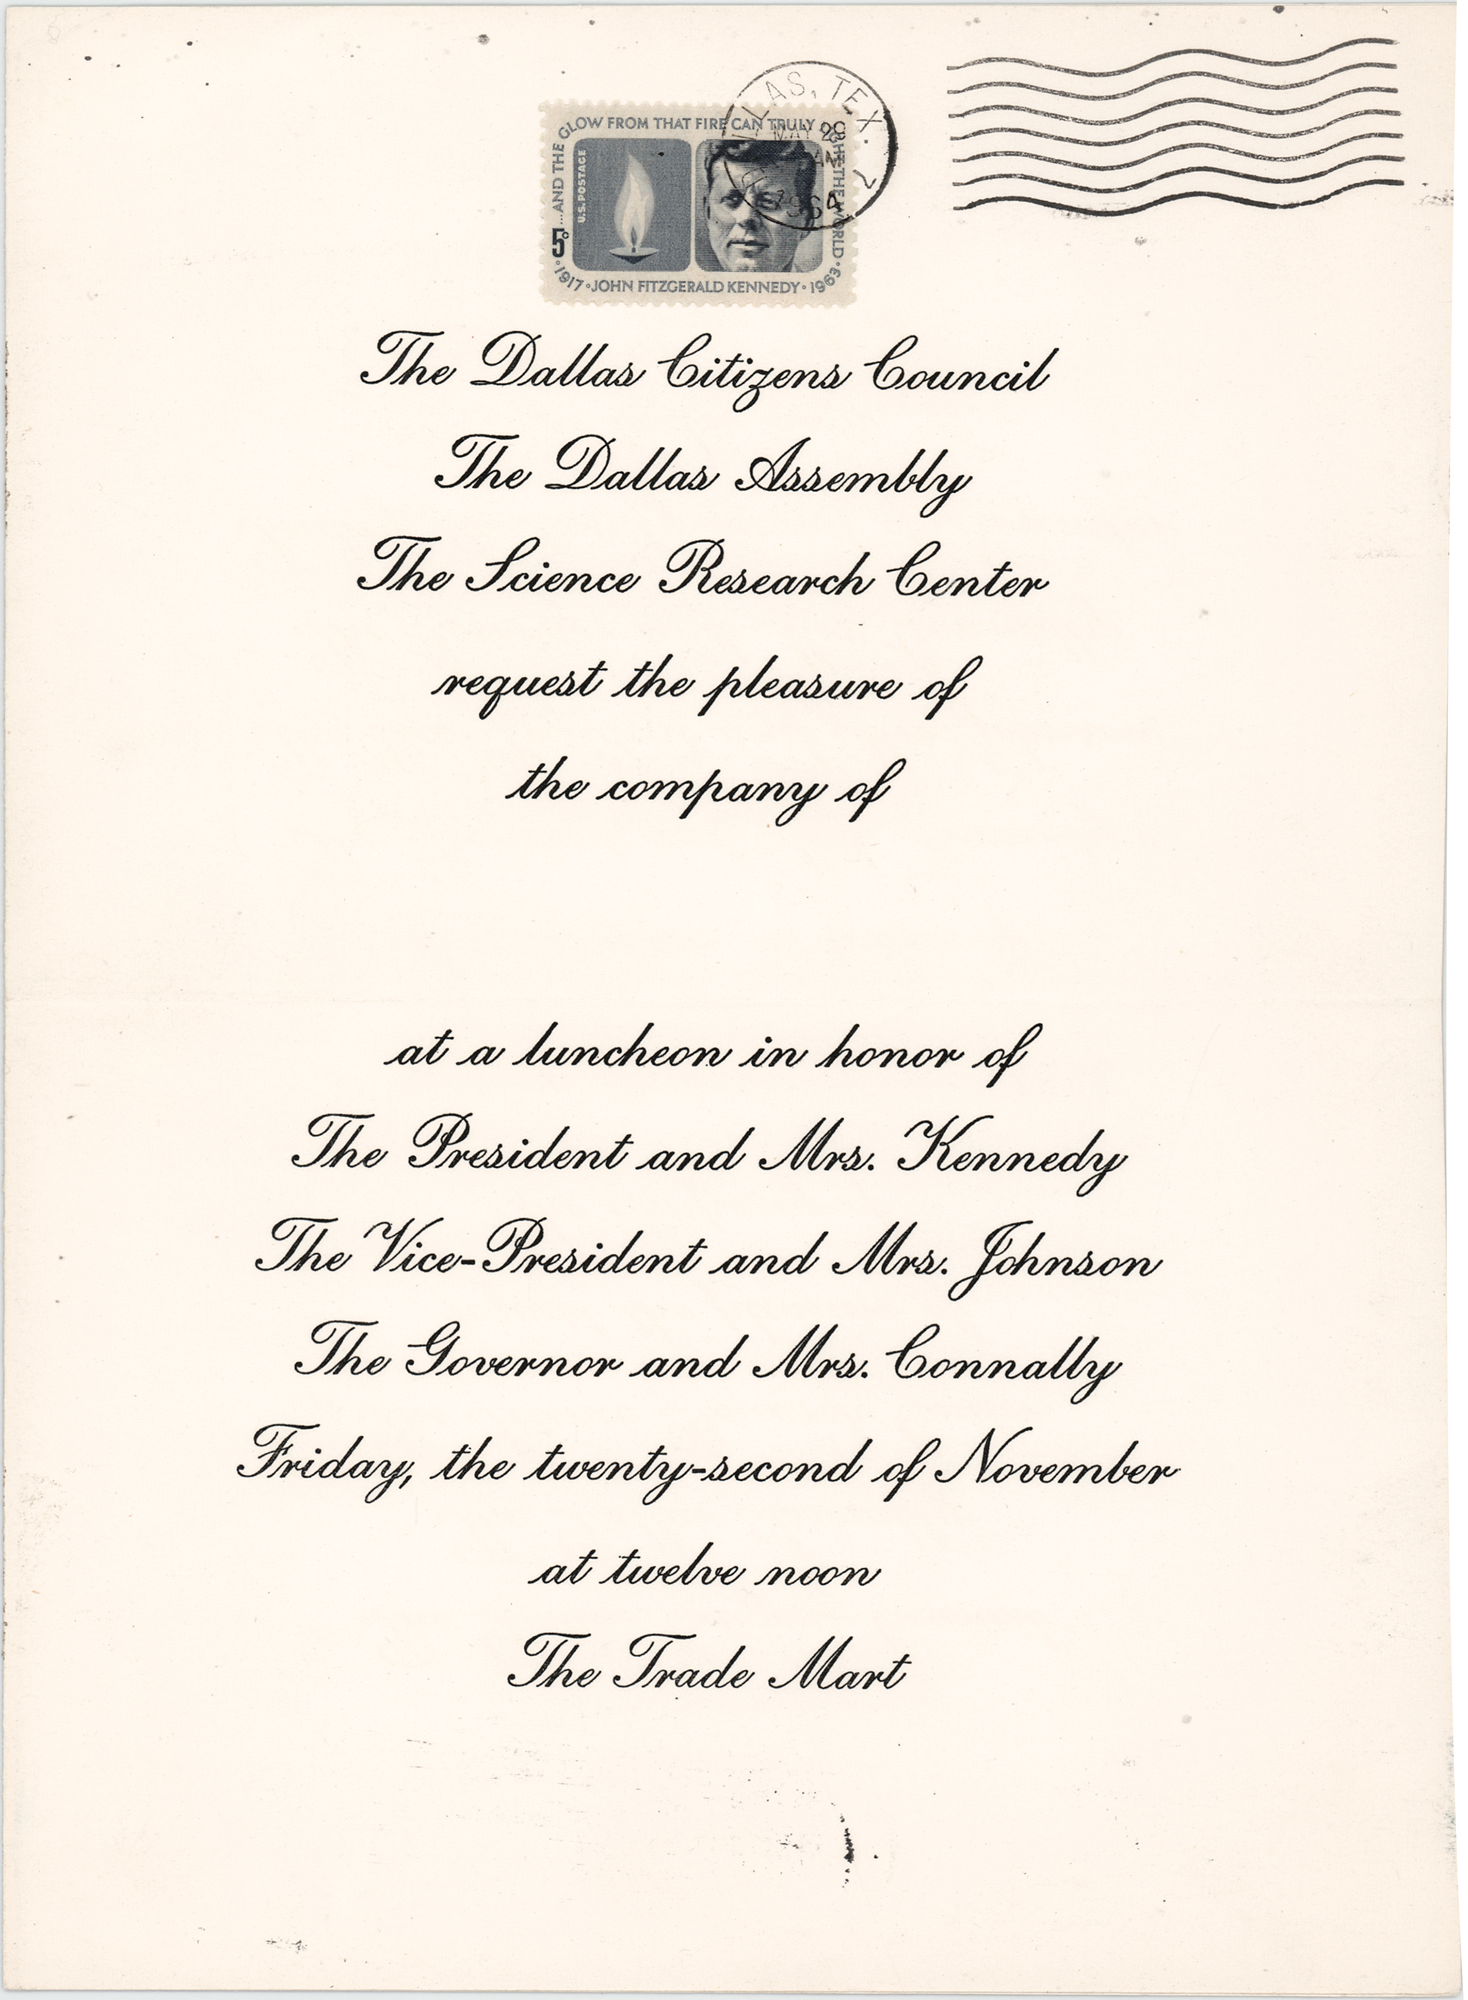 DALLAS, TEX.
MAY 29
AM
1964
...AND THE GLOW FROM THAT FIRE CAN TRULY LIGHT THE WORLD
U.S. POSTAGE
5¢
1917 • JOHN FITZGERALD KENNEDY • 1963
The Dallas Citizens Council
The Dallas Assembly
The Science Research Center
request the pleasure of
the company of
at a luncheon in honor of
The President and Mrs. Kennedy
The Vice-President and Mrs. Johnson
The Governor and Mrs. Connally
Friday, the twenty-second of November
at twelve noon
The Trade Mart